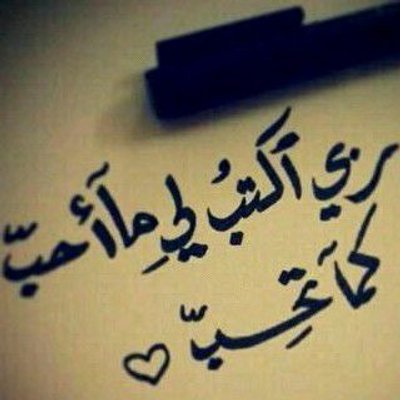 ربي آكتبُ لي مآ أحبّ
كمآ تحبّ